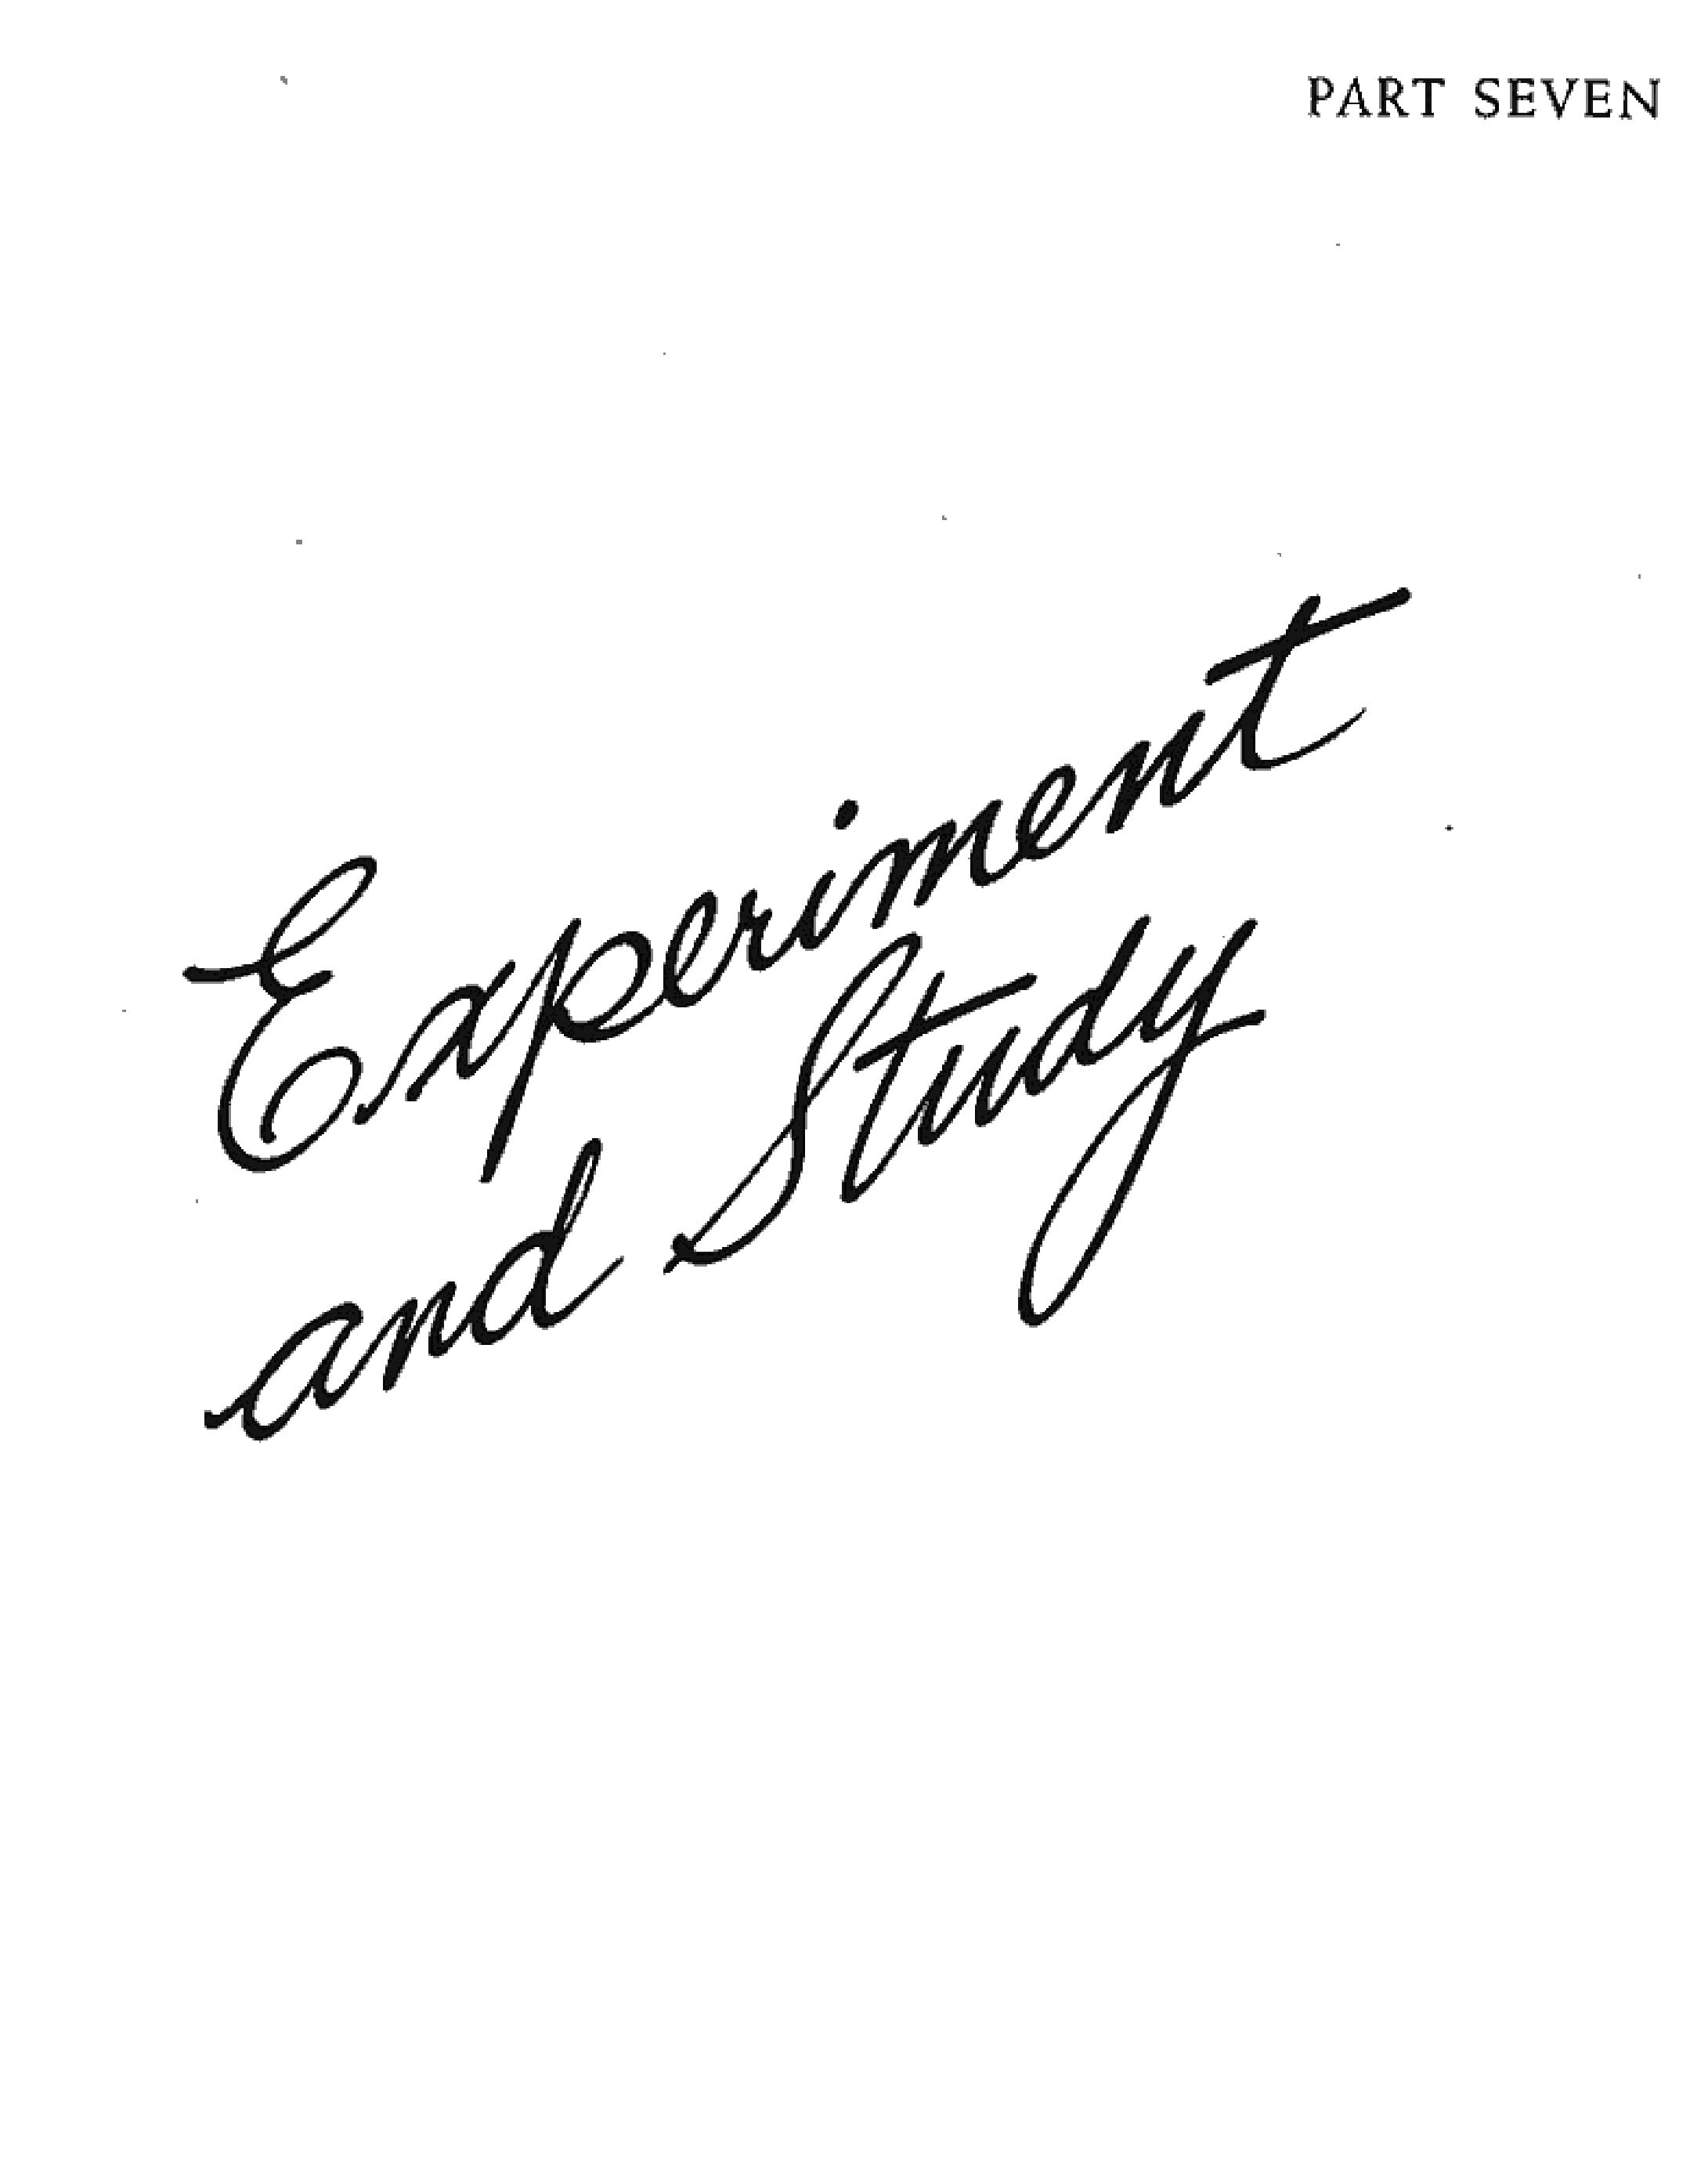 PART SEVEN
Experiment
and Study